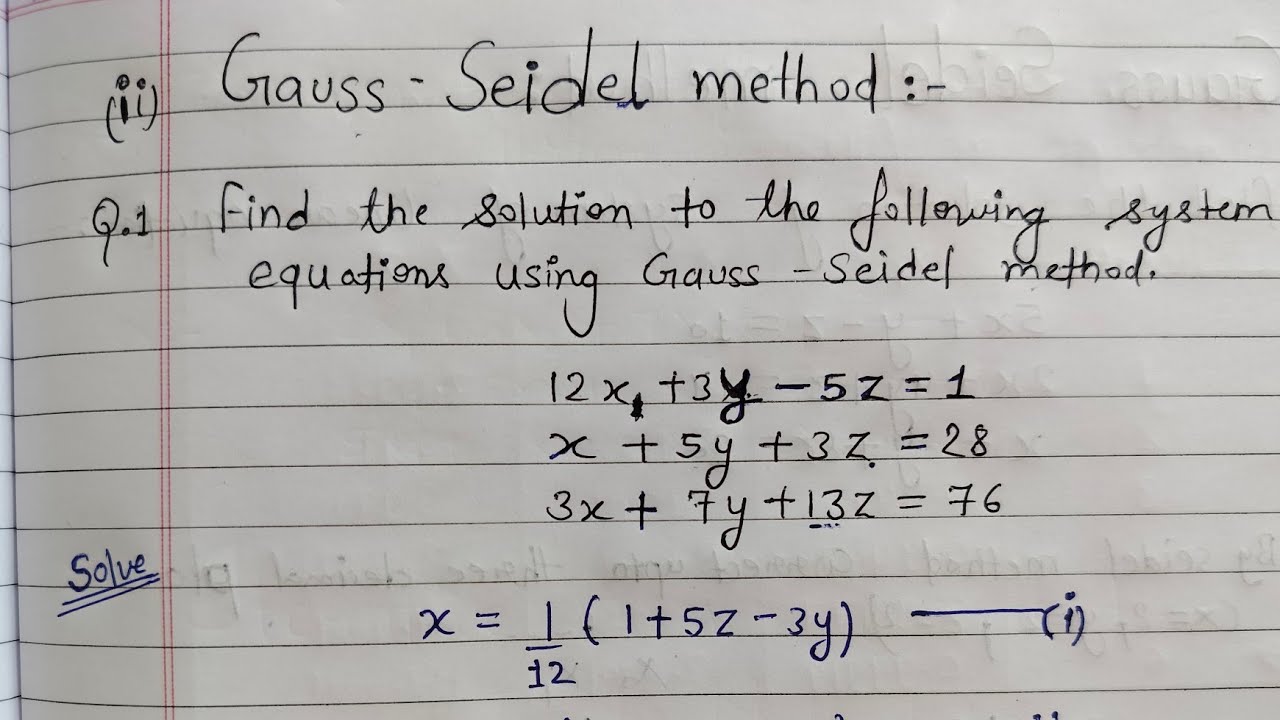 (ii) Gauss - Seidel method :-
Q.1 Find the solution to the following system
equations using Gauss - Seidel method.
12x, + 3y - 5z = 1
x + 5y + 3z = 28
3x + 7y + 13z = 76
Solve
x = 1/12 ( 1 + 5z - 3y) —— (i)